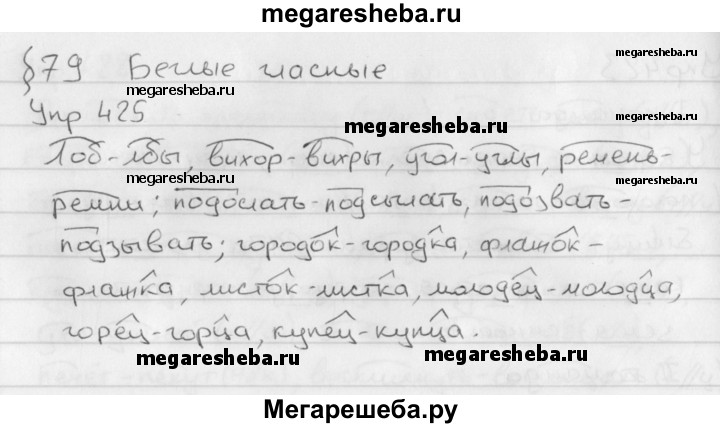 megaresheba.ru
§79 Беглые гласные
megaresheba.ru
megaresheba.ru
Упр 425
megaresheba.ru
Лоб-лбы, вихор-вихры, угол-углы, ремень-
megaresheba.ru
megaresheba.ru
ремни; подослать-подсылать, подозвать-
подзывать; городок-городка, флажок-
флажка, листок-листка, молодец-молодца,
горец-горца, купец-купца.
megaresheba.ru
megaresheba.ru
Мегарешеба.ру